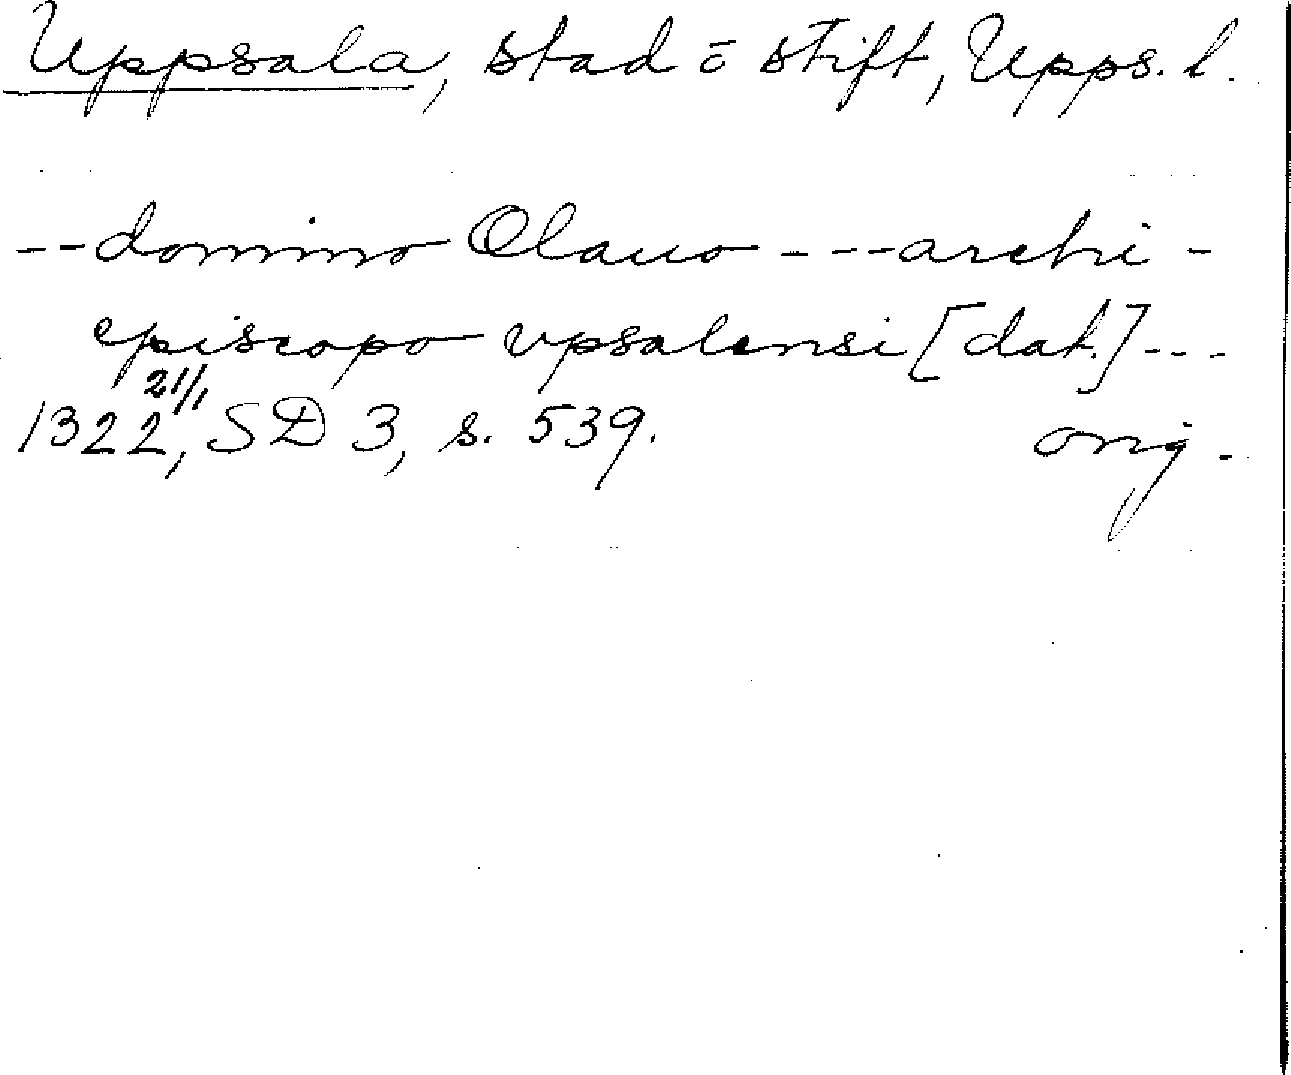 Uppsala, stad o stift, Upps. l.
-- domino Olauo - --- archi -
episcopo vpsalensi [dat.] ---
1322 21/1, SD 3, s. 539. orig.